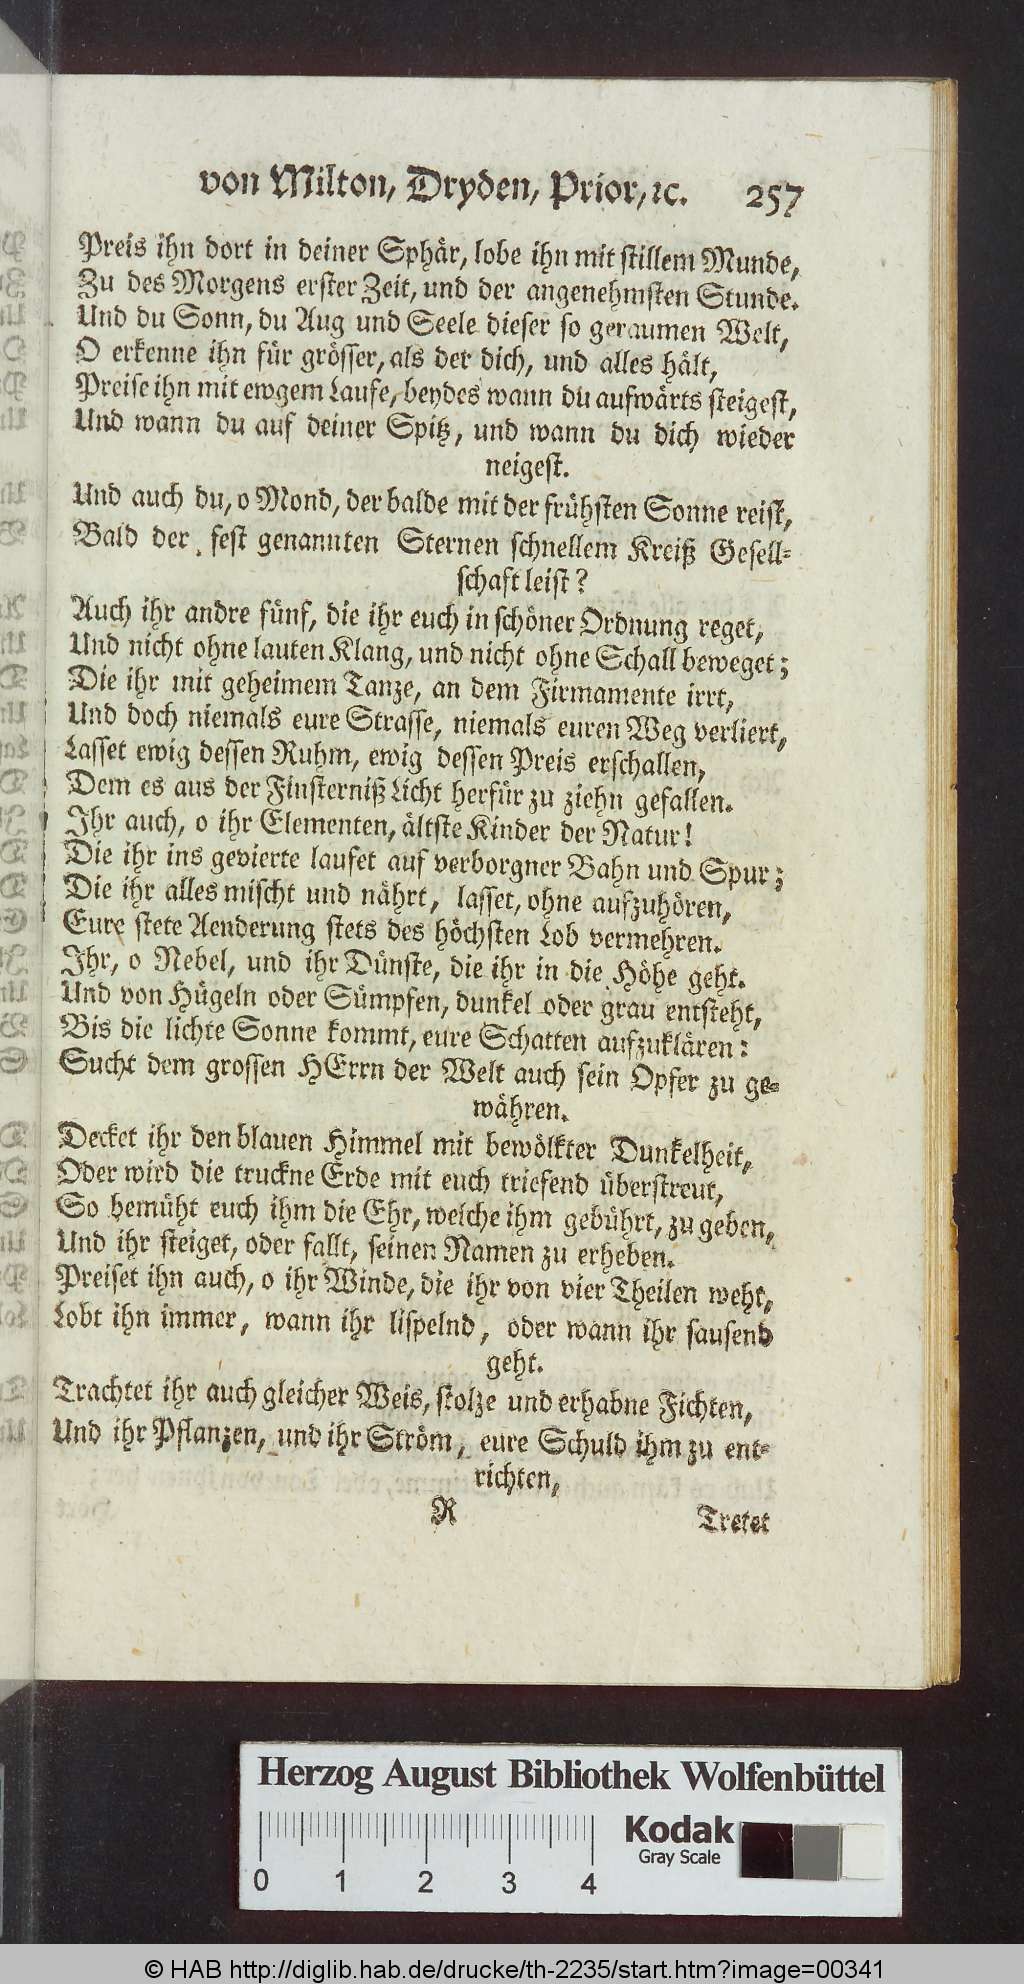 von Milton, Dryden, Prior, ꝛc. 257
Preis ihn dort in deiner Sphär, lobe ihn mit stillem Munde,
Zu des Morgens erster Zeit, und der angenehmsten Stunde.
Und du Sonn, du Aug und Seele dieser so geraumen Welt,
O erkenne ihn für grösser, als der dich, und alles hält,
Preise ihn mit ewgem Laufe, beydes wann du aufwärts steigest,
Und wann du auf deiner Spitz, und wann du dich wieder
neigest.
Und auch du, o Mond, der balde mit der frühsten Sonne reist,
Bald der fest genannten Sternen schnellem Kreiß Gesell-
schaft leist?
Auch ihr andre fünf, die ihr euch in schöner Ordnung reget,
Und nicht ohne lauten Klang, und nicht ohne Schall beweget;
Die ihr mit geheimem Tanze, an dem Firmamente irrt,
Und doch niemals eure Strasse, niemals euren Weg verliert,
Lasset ewig dessen Ruhm, ewig dessen Preis erschallen,
Dem es aus der Finsterniß Licht herfür zu ziehn gefallen.
Ihr auch, o ihr Elementen, ältste Kinder der Natur!
Die ihr ins gevierte laufet auf verborgner Bahn und Spur;
Die ihr alles mischt und nährt, lasset, ohne aufzuhören,
Eure stete Aenderung stets des höchsten Lob vermehren.
Ihr, o Nebel, und ihr Dünste, die ihr in die Höhe geht.
Und von Hügeln oder Sümpfen, dunkel oder grau entsteht,
Bis die lichte Sonne kommt, eure Schatten aufzuklären:
Sucht dem grossen HErrn der Welt auch sein Opfer zu ge-
währen.
Decket ihr den blauen Himmel mit bewölkter Dunkelheit,
Oder wird die truckne Erde mit euch triefend überstreut,
So bemüht euch ihm die Ehr, welche ihm gebührt, zu geben,
Und ihr steiget, oder fallt, seinen Namen zu erheben.
Preiset ihn auch, o ihr Winde, die ihr von vier Theilen weht,
Lobt ihn immer, wann ihr lispelnd, oder wann ihr sausend
geht.
Trachtet ihr auch gleicher Weis, stolze und erhabne Fichten,
Und ihr Pflanzen, und ihr Ström, eure Schuld ihm zu ent-
richten,
R Tretet
Herzog August Bibliothek Wolfenbüttel
0 1 2 3 4
Kodak
Gray Scale
© HAB http://diglib.hab.de/drucke/th-2235/start.htm?image=00341